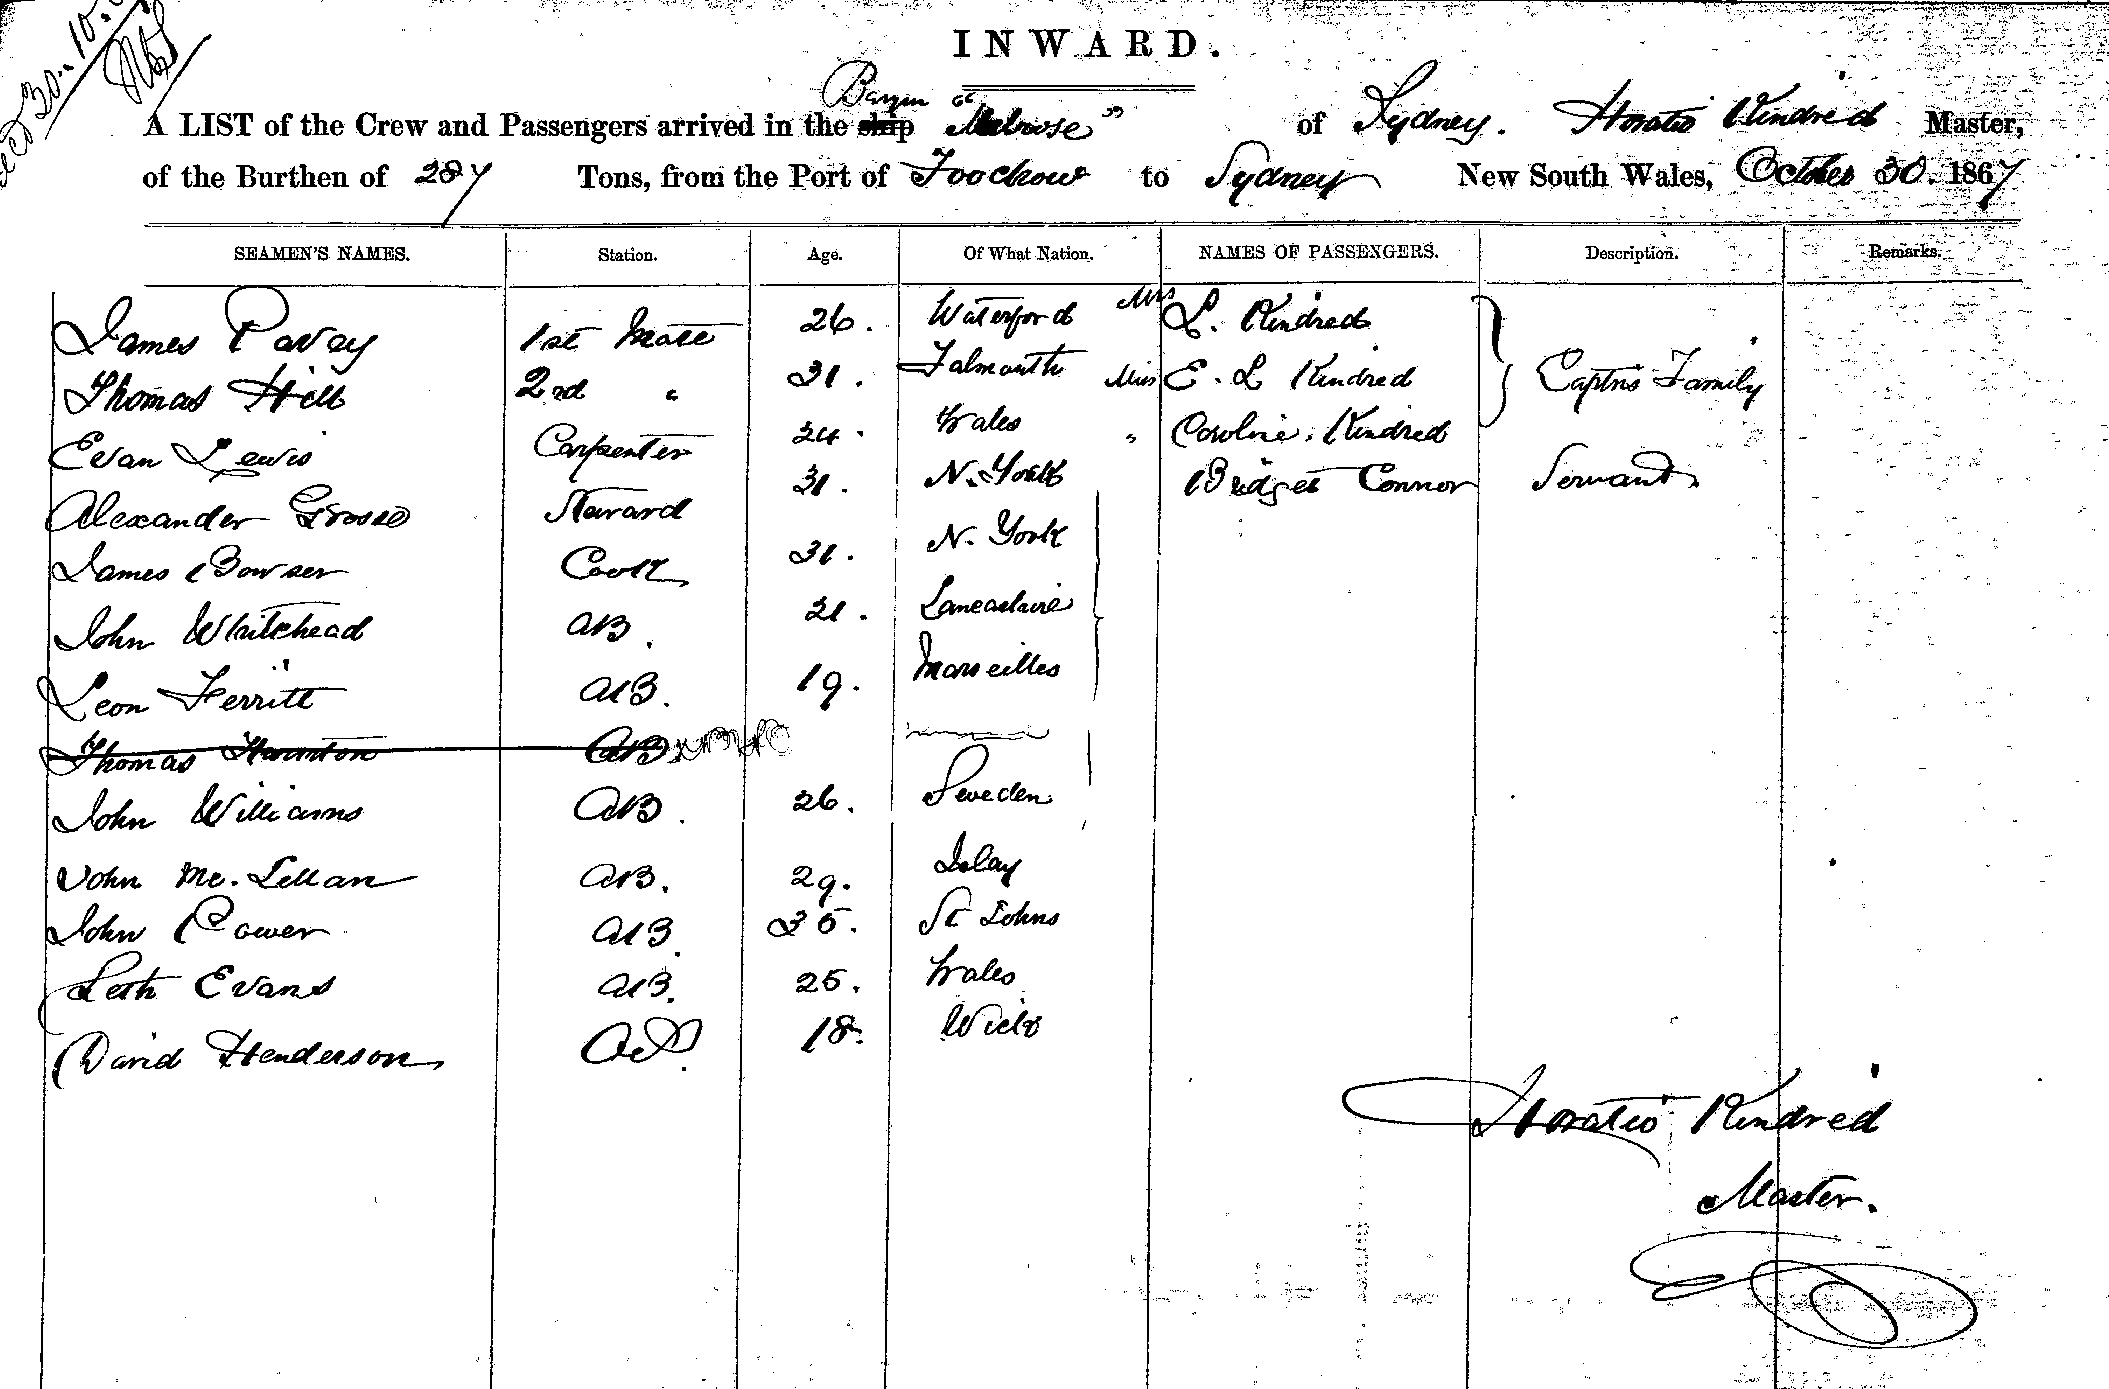 Recd 30.10.
INWARD.
A LIST of the Crew and Passengers arrived in the ship Barque "Melrose" of Sydney. Horatio Kindred Master,
of the Burthen of 287 Tons, from the Port of Foochow to Sydney New South Wales, October 30. 1867
SEAMEN'S NAMES. Station. Age. Of What Nation. NAMES OF PASSENGERS. Description. Remarks.
James Pavay 1st Mate 26. Waterford Mrs L. Kindred
Thomas Hill 2nd " 31. Falmouth Miss E. L Kindred Captns Family
Evan Lewis Carpenter 24. Wales " Caroline. Kindred
Alexander Grosse Steward 31. N. York Bridget Connor Servant
James Bowser Cook 31. N. York
John Whitehead AB. 21. Lancashire
Leon Ferritt AB. 19. Marseilles
Thomas AB
John Williams AB. 26. Sweden
John Mc. Lellan AB. 29. Islay
John Power AB. 35. St Johns
Seth Evans AB. 25. Wales
David Henderson OS. 18. Wick
Horatio Kindred
Master.